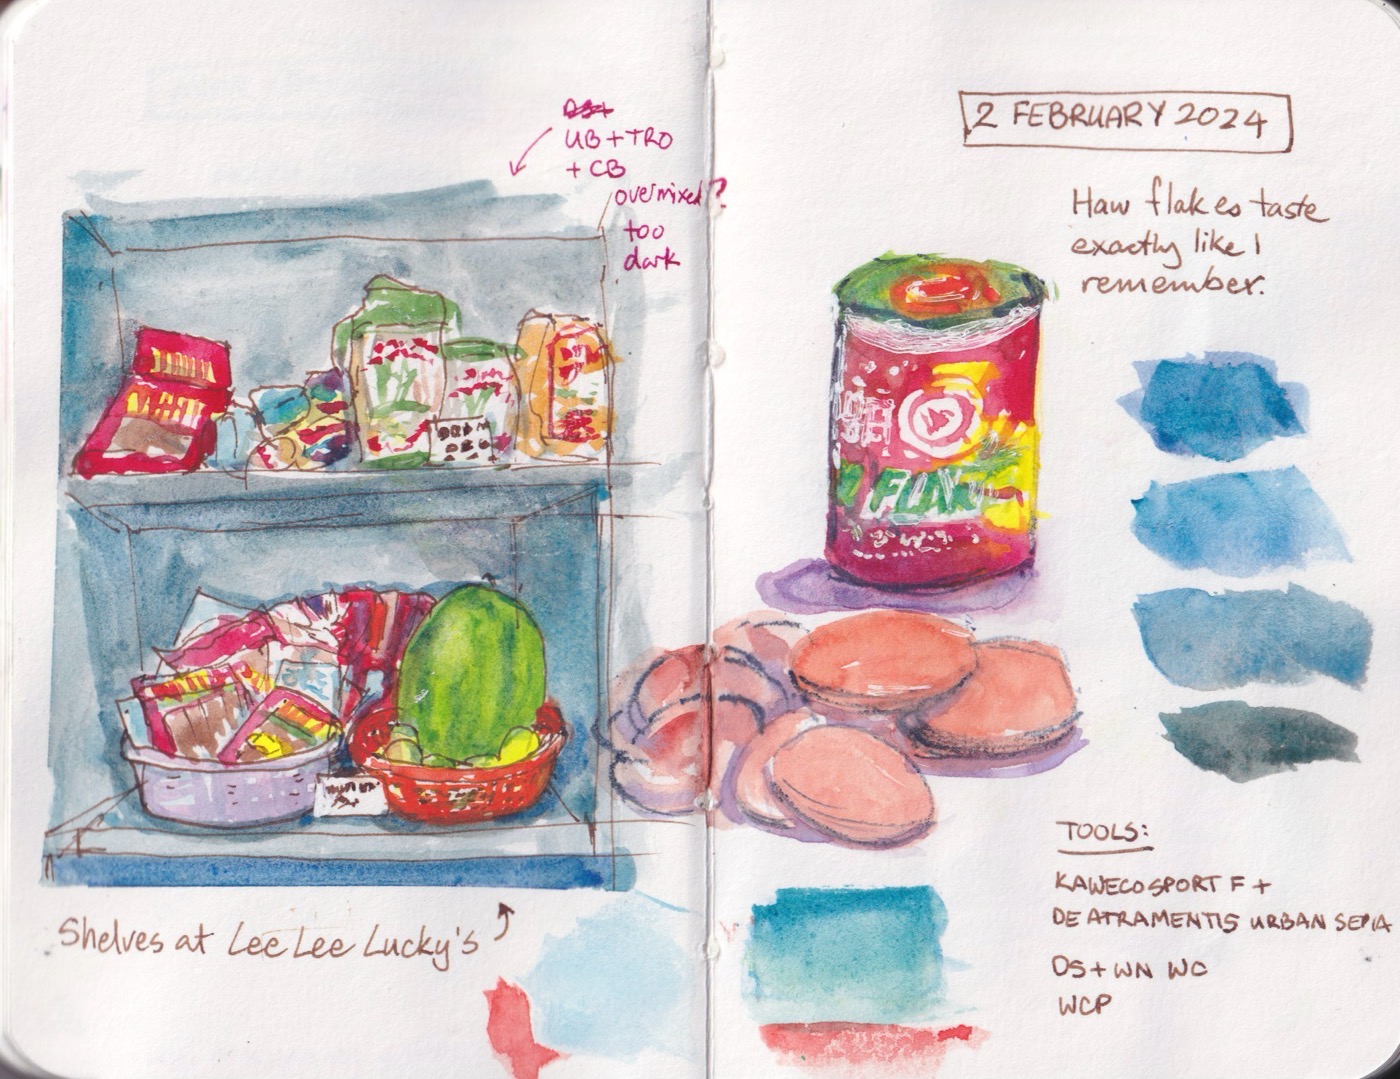 UB+TRO
+CB
overmixed?
too
dark
Shelves at Lee Lee Lucky's
2 FEBRUARY 2024
Haw flakes taste
exactly like I
remember.
FLAK
TOOLS:
KAWECO SPORT F +
DE ATRAMENTIS URBAN SEPIA
DS+WN WC
WCP